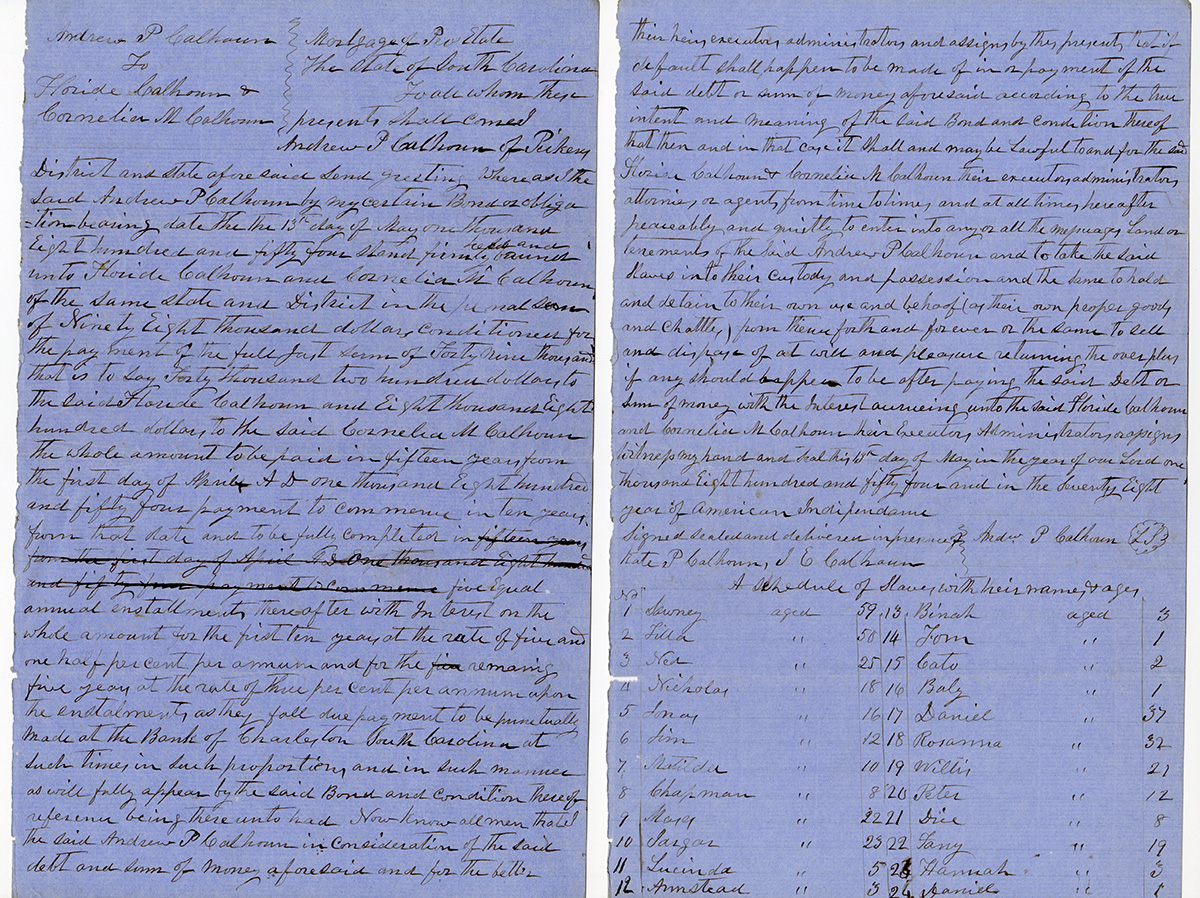 Andrew P Calhoun
To
Floride Calhoun &
Cornelia M Calhoun
Mortgage of Per Estate
The State of South Carolina
To all whom these
presents Shall come
Andrew P Calhoun of Pickens
District and State aforesaid Send greeting Whereas I the
said Andrew P Calhoun by my certain Bond or obliga
-tion bearing date the the 13th day of May one thousand
Eight hundred and fifty four Stand firmly held and bound
unto Floride Calhoun and Cornelia M Calhoun
of the same state and District in the penal sum
of Ninety Eight thousand dollars conditioned for
the payment of the full Just Sum of Forty Nine thousand
that is to say Forty thousand two hundred dollars to
the said Floride Calhoun and Eight thousand Eight
hundred dollars to the said Cornelia M Calhoun
the whole amount to be paid in fifteen years from
the first day of April A D one thousand Eight hundred
and fifty four payment to commence in ten years
from that date and to be fully completed in fifteen years
from the first day of April A D one thousand Eight hundred
and fifty four payment to commence five Equal
annual enstallments thereafter with Interest on the
whole amount for the first ten years at the rate of five and
one half per cent per annum and for the five remaing
five years at the rate of three per cent per annum upon
the enstalments as they fall due payment to be punctually
made at the Bank of Charleston South Carolina at
such times in such proportions and in such manner
as will fully appear by the said Bond and condition thereof
reference being thereunto had Now Know all men that I
the said Andrew P Calhoun in consideration of the said
debt and sum of money aforesaid and for the better
their heirs executors administrators and assigns by these presents that if
default shall happen to be made of in or payment of the
said debt or sum of money aforesaid according to the true
intent and meaning of the said Bond and condition thereof
that then and in that case it Shall and may be Lawful to and for the said
Floride Calhoun & Cornelia M Calhoun their executors administrators
attornies or agents from time to times and at all times hereafter
peaceably and quietly to enter into any or all the messuages Land or
tenements of the Said Andrew P Calhoun and to take the said
Slaves into their custody and possession and the same to hold
and detain to their own use and behoof (as their own proper goods
and Chattles) from thence forth and forever or the same to sell
and dispose of at will and pleasure returning the over plus
if any should happen to be after paying the said Debt or
Sum of money with the Interest accrueing unto the said Floride Calhoun
and Cornelia M Calhoun their Executors Administrators or assigns
Witness my hand and Seal this day of May in the year of our Lord one
thousand Eight hundred and fifty four and in the Seventy Eight
year of American Independance
Signed sealed and delivered in presence of Andw P Calhoun
Kate P Calhoun, J E Calhoun
A Schedule of Slaves with their names & ages
No
1 Sawney aged 59 13 Binah aged 3
2 Tilla " 50 14 Tom " 1
3 Ned " 25 15 Cato " 2
4 Nicholas " 18 16 Baly " 1
5 Jonas " 16 17 Daniel " 37
6 Jim " 12 18 Rosanna " 32
7 Matilda " 10 19 Willis " 21
8 Chapman " 8 20 Peter " 12
9 " 22 21 Dice " 8
10 " 23 22 Fany " 19
11 Lucinda " 5 23 Hannah " 3
12 Armstead " 3 24 Daniel " 1